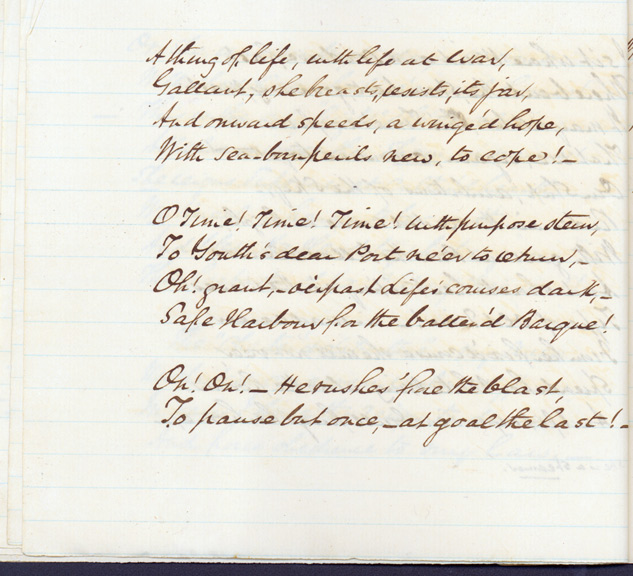 A thing of life, with life at war,
Gallant, she breasts, resists, its jar,
And onward speeds, a winged hope,
With sea-born perils new, to cope! –
O Time! Time! Time! with purpose stern,
To Youth's dear Port ne'er to return, –
Oh! grant, – o'erpast Life's courses dark, –
Safe Harbour for the batter'd Barque!
On! On! – He rushes 'fore the blast,
To pause but once, – at goal the last! –